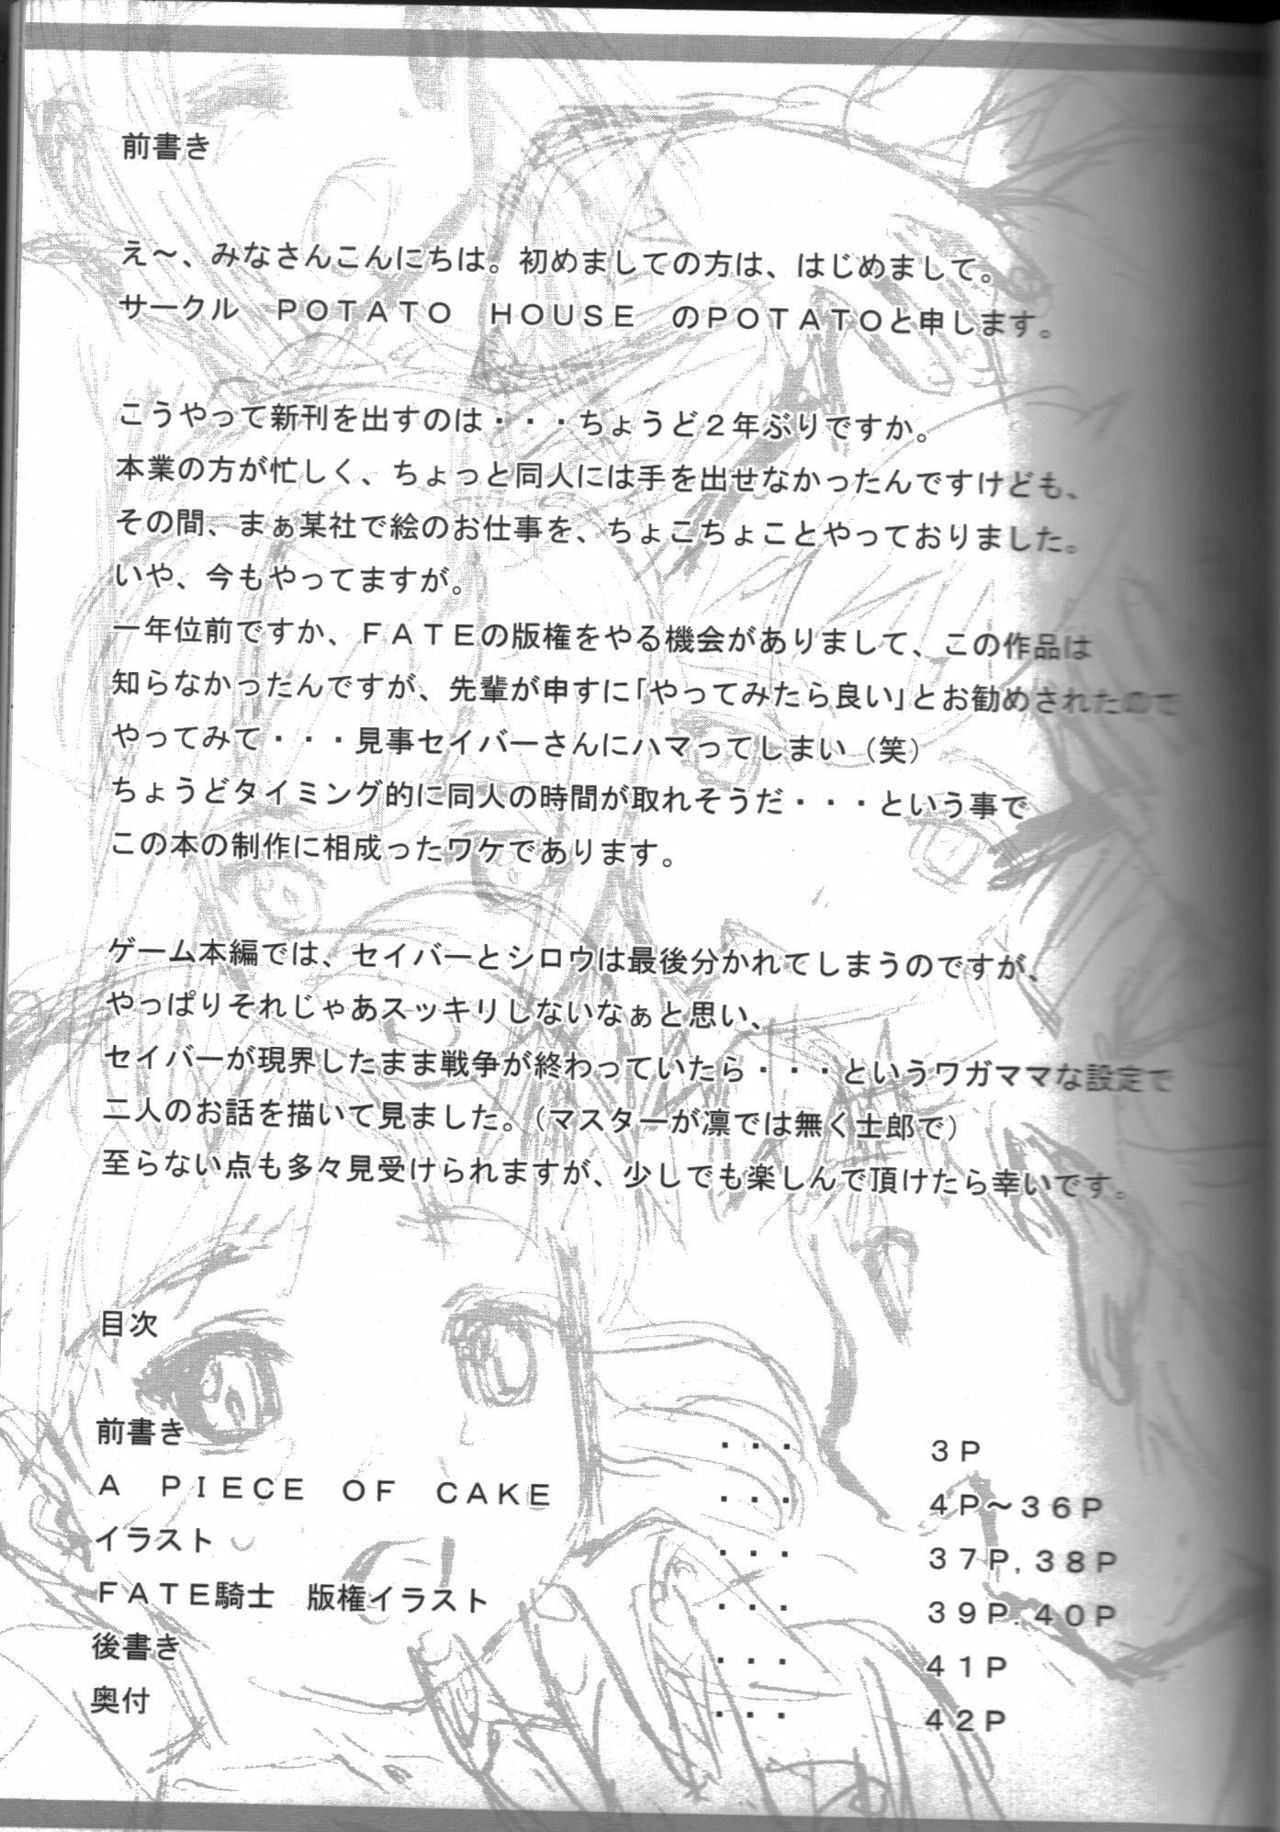 前書き
え～、みなさんこんにちは。初めましての方は、はじめまして。
サークル　ＰＯＴＡＴＯ　ＨＯＵＳＥ　のＰＯＴＡＴＯと申します。
こうやって新刊を出すのは・・・ちょうど２年ぶりですか。
本業の方が忙しく、ちょっと同人には手を出せなかったんですけども、
その間、まぁ某社で絵のお仕事を、ちょこちょことやっておりました。
いや、今もやってますが。
一年位前ですか、ＦＡＴＥの版権をやる機会がありまして、この作品は
知らなかったんですが、先輩が申すに「やってみたら良い」とお勧めされたので
やってみて・・・見事セイバーさんにハマってしまい（笑）
ちょうどタイミング的に同人の時間が取れそうだ・・・という事で
この本の制作に相成ったワケであります。
ゲーム本編では、セイバーとシロウは最後分かれてしまうのですが、
やっぱりそれじゃあスッキリしないなぁと思い、
セイバーが現界したまま戦争が終わっていたら・・・というワガママな設定で
二人のお話を描いて見ました。（マスターが凛では無く士郎で）
至らない点も多々見受けられますが、少しでも楽しんで頂けたら幸いです。
目次
前書き　・・・　３Ｐ
Ａ　ＰＩＥＣＥ　ＯＦ　ＣＡＫＥ　・・・　４Ｐ～３６Ｐ
イラスト　・・・　３７Ｐ,３８Ｐ
ＦＡＴＥ騎士　版権イラスト　・・・　３９Ｐ,４０Ｐ
後書き　・・・　４１Ｐ
奥付　・・・　４２Ｐ